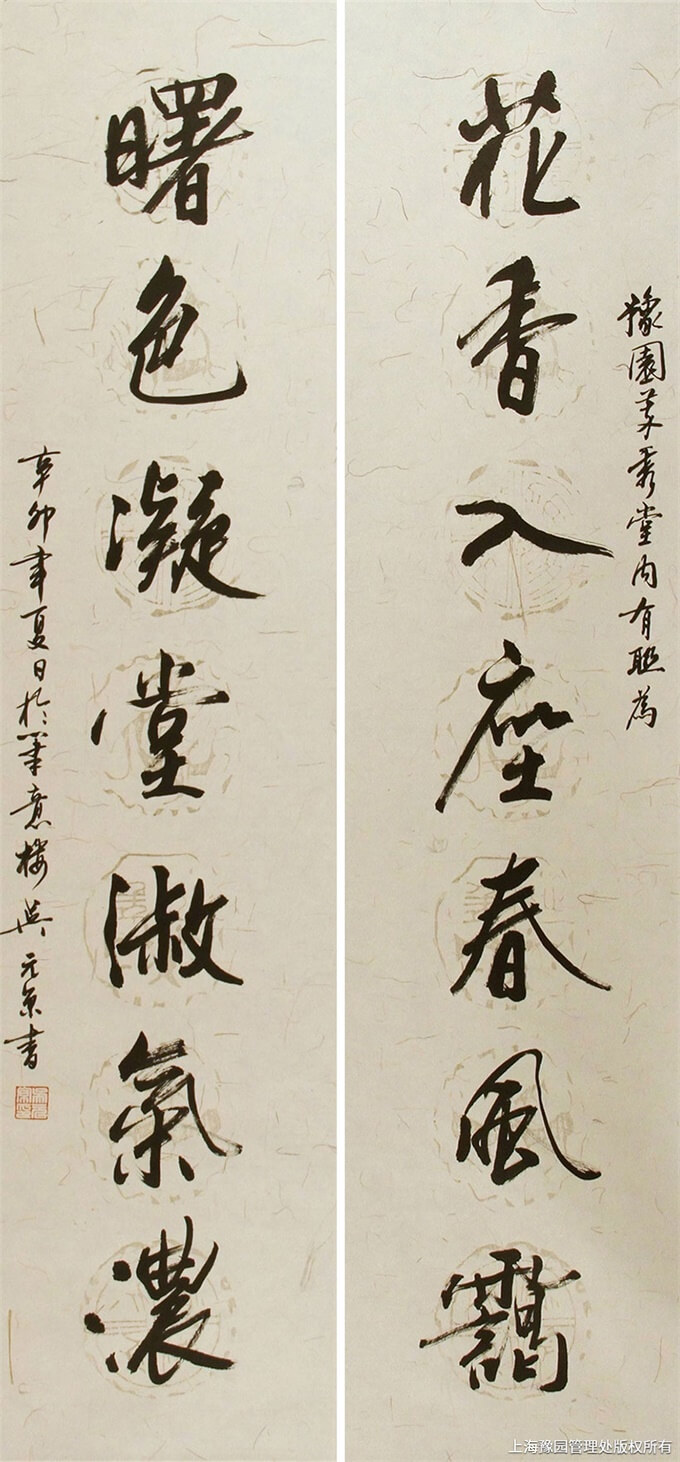 豫園萃秀堂内有聯為
花香入座春風靄
曙色凝堂淑氣濃
辛卯年夏日於筆意樓吳元京書
上海豫园管理处版权所有